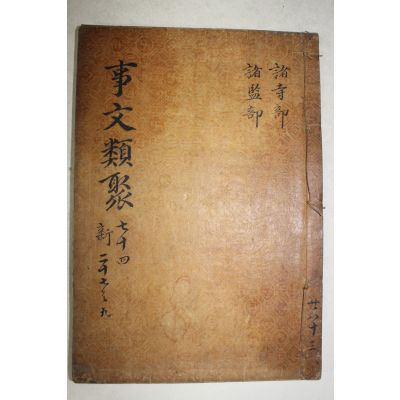 諸寺部
諸監部
事文類聚
七十四
新 二十七之九
共八十三